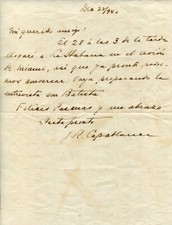 Dic 27/940
Mi querido amigo:
El 28 a las 3 de la tarde
llegaré a La Habana en el avión
de Miami, así que ya pronto podre-
mos conversar. Vaya preparando la
entrevista con Batista.
Felices Pascuas y un abrazo
Hasta pronto
J. R. Capablanca